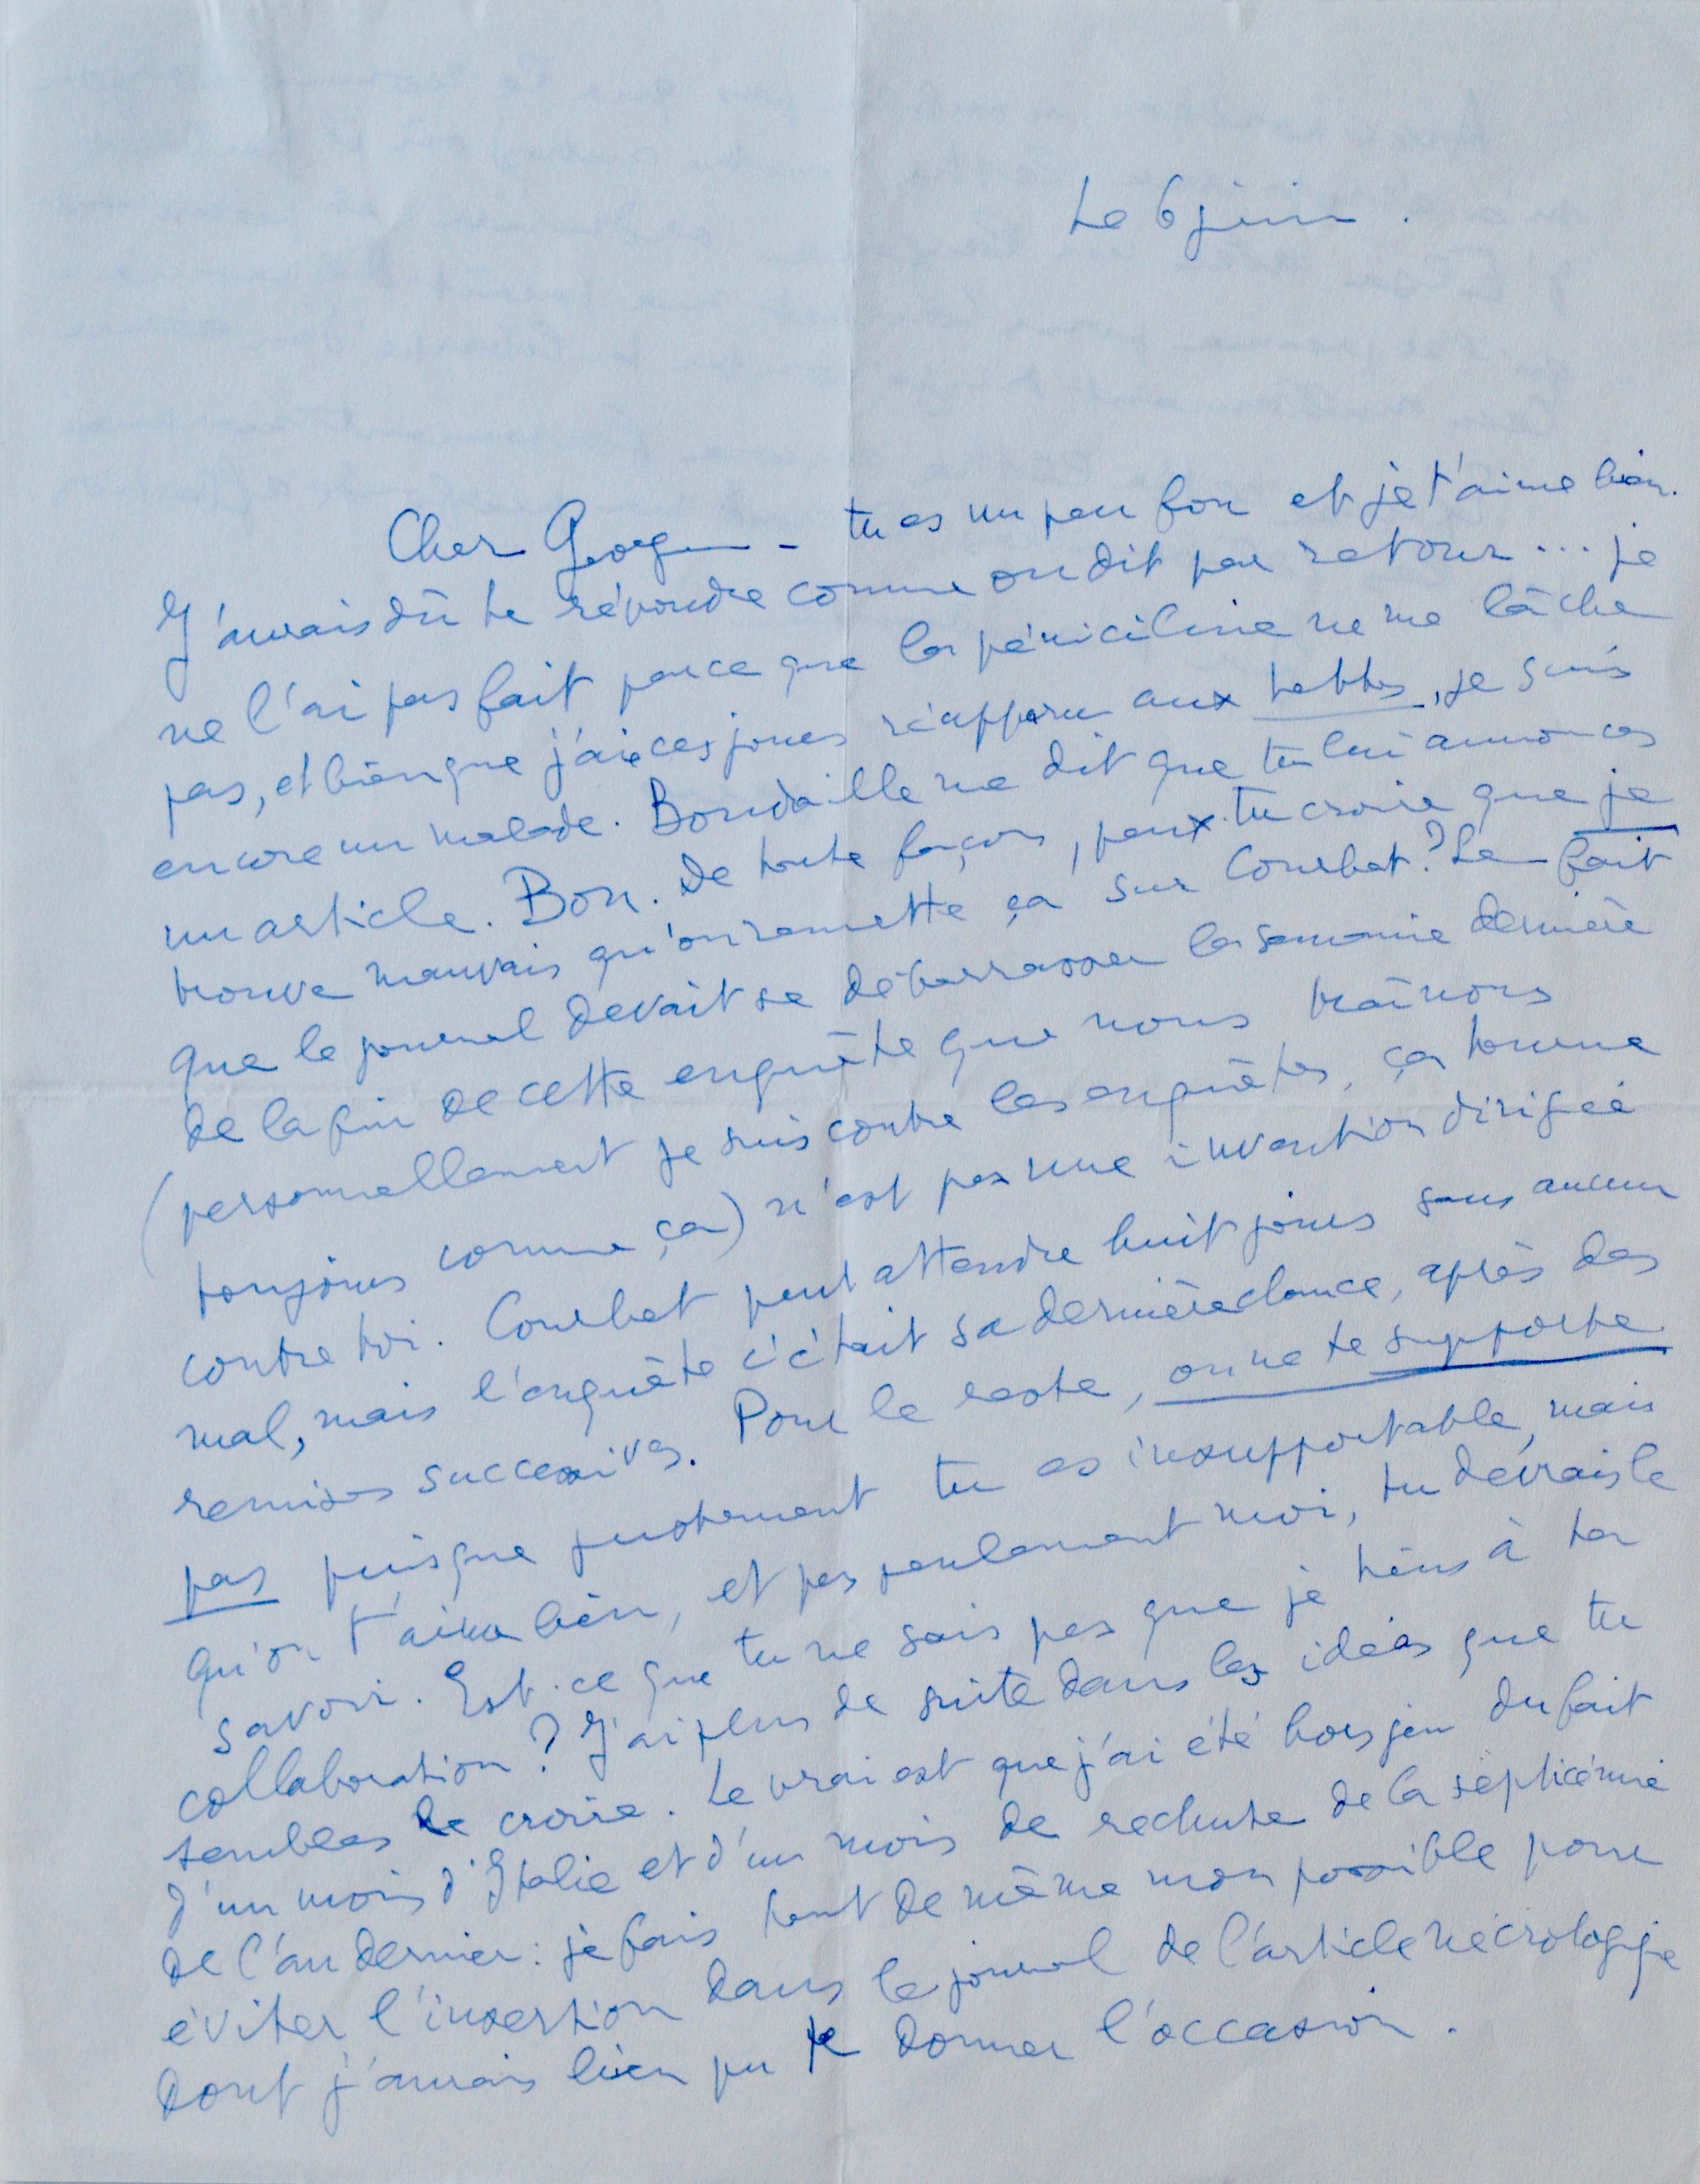 Le 6 juin.
Cher Georges - tu es un peu fou et je t'aime bien.
J'aurais dû te répondre comme on dit par retour... je
ne l'ai pas fait parce que la péniciline ne me lâche
pas, et bien que j'aie ces jours réapparu aux , je suis
encore un malade. Boudaille me dit que tu lui annonces
un article. Bon. De toute façon, peux-tu croire que je
trouve mauvais qu'on remette ça sur Courbet? Le fait
que le journal devait se débarrasser la semaine dernière
de la fin de cette enquête que nous traînons
(personnellement je suis contre les enquêtes, ça tourne
toujours comme ça) n'est pas une invention dirigée
contre toi. Courbet peut attendre huit jours sans aucun
mal, mais l'enquête c'était sa dernière chance, après des
remises successives. Pour le reste, on ne te supporte
pas puisque justement tu es insupportable, mais
qu'on t'aime bien, et pas seulement moi, tu devrais le
savoir. Est-ce que tu ne sais pas que je tiens à ta
collaboration? J'ai plus de suite dans les idées que tu
sembles le croire. Le vrai est que j'ai été hors jeu du fait
d'un mois d'Italie et d'un mois de rechute de la septicémie
de l'an dernier: je fais tout de même mon possible pour
éviter l'insertion dans le journal de l'article nécrologique
dont j'aurais bien pu te donner l'occasion.